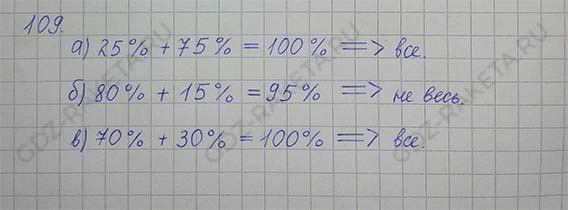 109.
а) 25% + 75% = 100% => все.
б) 80% + 15% = 95% => не весь.
в) 70% + 30% = 100% => все.
GDZ-RAKETA.RU
GDZ-RAKETA.RU
GDZ-RAKETA.RU